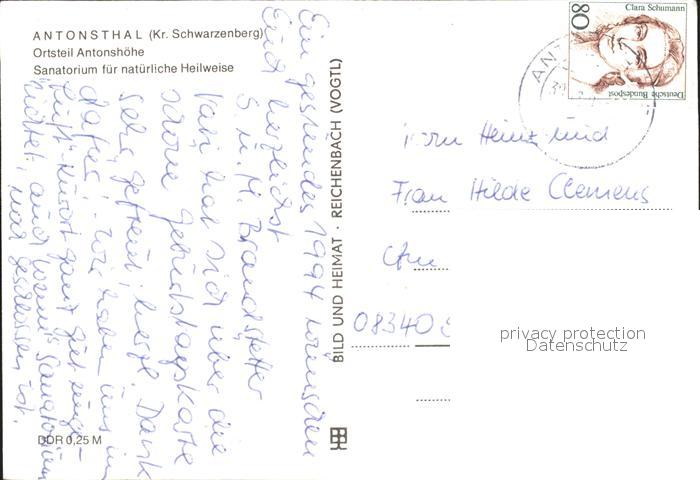 ANTONSTHAL (Kr. Schwarzenberg)
Ortsteil Antonshöhe
Sanatorium für natürliche Heilweise
Ein gesundes 1994 wünschen
Euch herzlichst
S. u. M. Brandstetter
hat sich über die
schöne Geburtstagskarte
sehr gefreut, herzl. Dank
dafür! Wir haben uns im
Luft-Kurort ganz gut
auch wenn's Sanatorium
geschlossen ist.
DDR 0,25 M
BILD UND HEIMAT · REICHENBACH (VOGTL)
Clara Schumann
80
Deutsche Bundespost
ANT
Heinz und
Frau Hilde Clemens
08340 S
privacy protection
Datenschutz